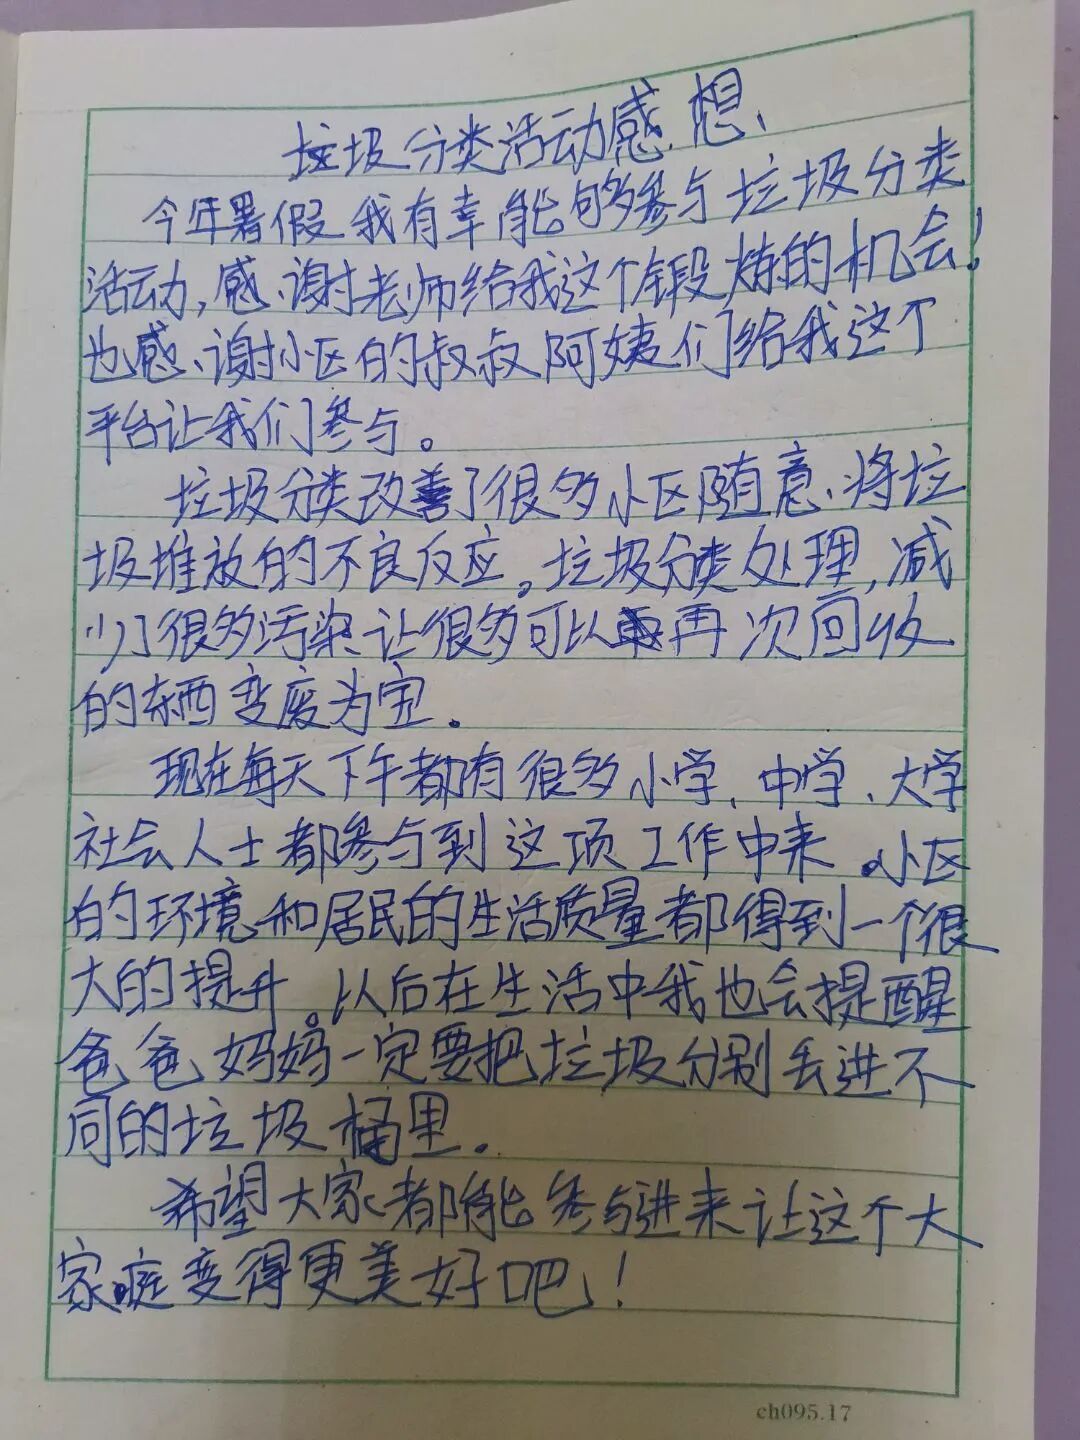 垃圾分类活动感想、
今年暑假我有幸能够参与垃圾分类
活动,感谢老师给我这个锻炼的机会!
也感谢小区的叔叔阿姨们给我这个
平台让我们参与。
垃圾分类改善了很多小区随意将垃
圾堆放的不良反应。垃圾分类处理,减
少了很多污染让很多可以再次回收
的东西变废为宝。
现在每天下午都有很多小学、中学、大学
社会人士都参与到这项工作中来。小区
的环境和居民的生活质量都得到一个很
大的提升。以后在生活中我也会提醒
爸爸妈妈一定要把垃圾分别丢进不
同的垃圾桶里。
希望大家都能参与进来让这个大
家庭变得更美好吧!
ch095.17